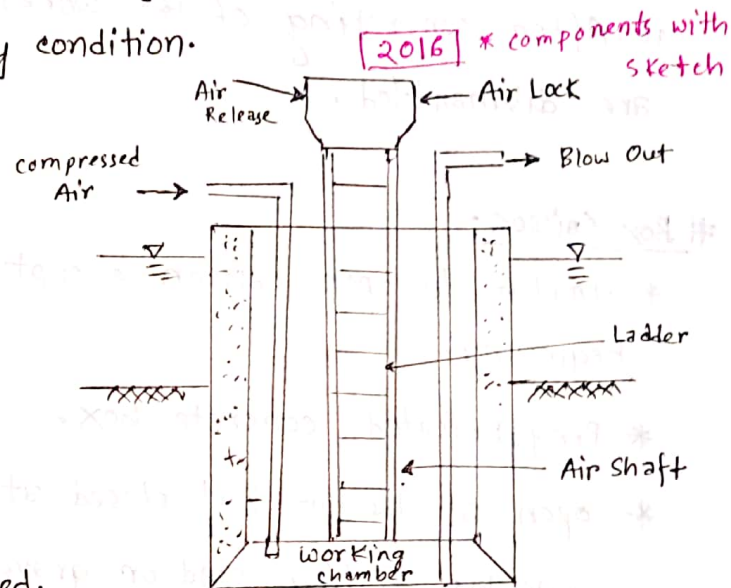 y condition.
2016 * components with
sketch
Air
Release
Air Lock
compressed
Air
Blow Out
Ladder
Air Shaft
working
chamber
ed.